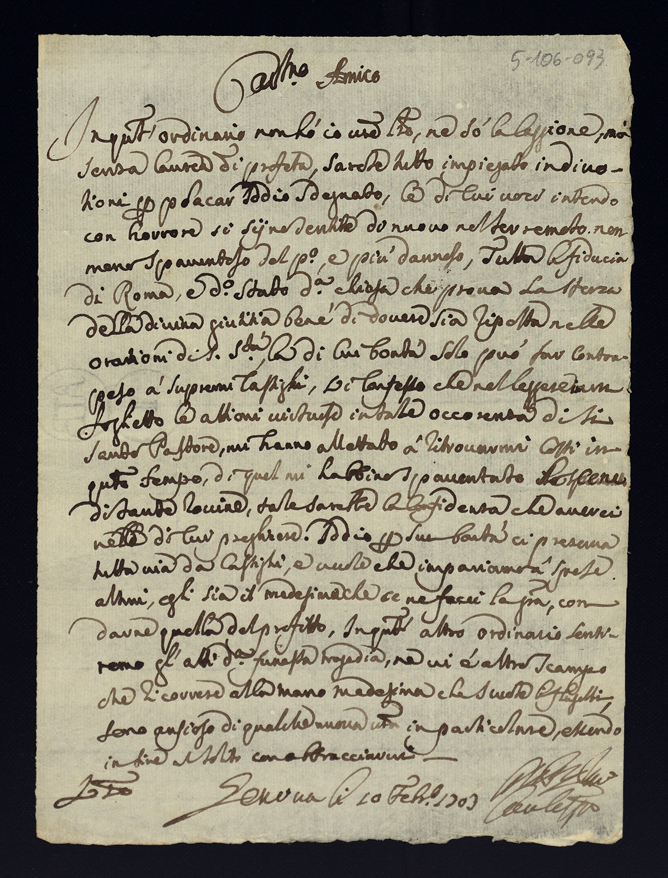 5-106-093
Car.mo Amico
In quest' ordinario non hó io vre, ne só la caggione, má
senza laurea di profeta, sarete tutto impiegato in divo-
tioni p placar Iddio sdegnato, le di cui voci intendo
con horrore si sijno sentite di nuovo nel terremoto non
meno spaventoso del p.o, e piú dannoso, Tutta la fiducia
di Roma, e d.o Stato d.a chiesa che prova la sferza
della divina giustitia bene di dovere sia riposta nelle
orationi di S. S.tá, la di cui bontá solo puó far contra-
peso á supremi castighi, vi confesso che nel leggere in un
foghetto le attioni virtuose in tale occorenza di si
santo Pastore, mi hanno allettato á ritrovarmi costi in
questo tempo, di quel mi habbino spaventato
di tante rovine, tale sarebbe la confidenza che averei
nelle di lui preghiere. Iddio p sua bontá ci preserva
tutta via da castighi, e vuole che impariamo á spese
altrui, egli sia il medesimo che ce ne facci la gra, con
darne quella del profitto, In quest' altro ordinario senti-
remo gli atti d.a funesta tragedia, ne vi é altro scampo
che ricorrere alla mano medesima che scuote
sono ansioso di qualche nuova vra in particolare, essendo
in fine al solito con abbracciarvi
Genova li 10 Febr.o 1703